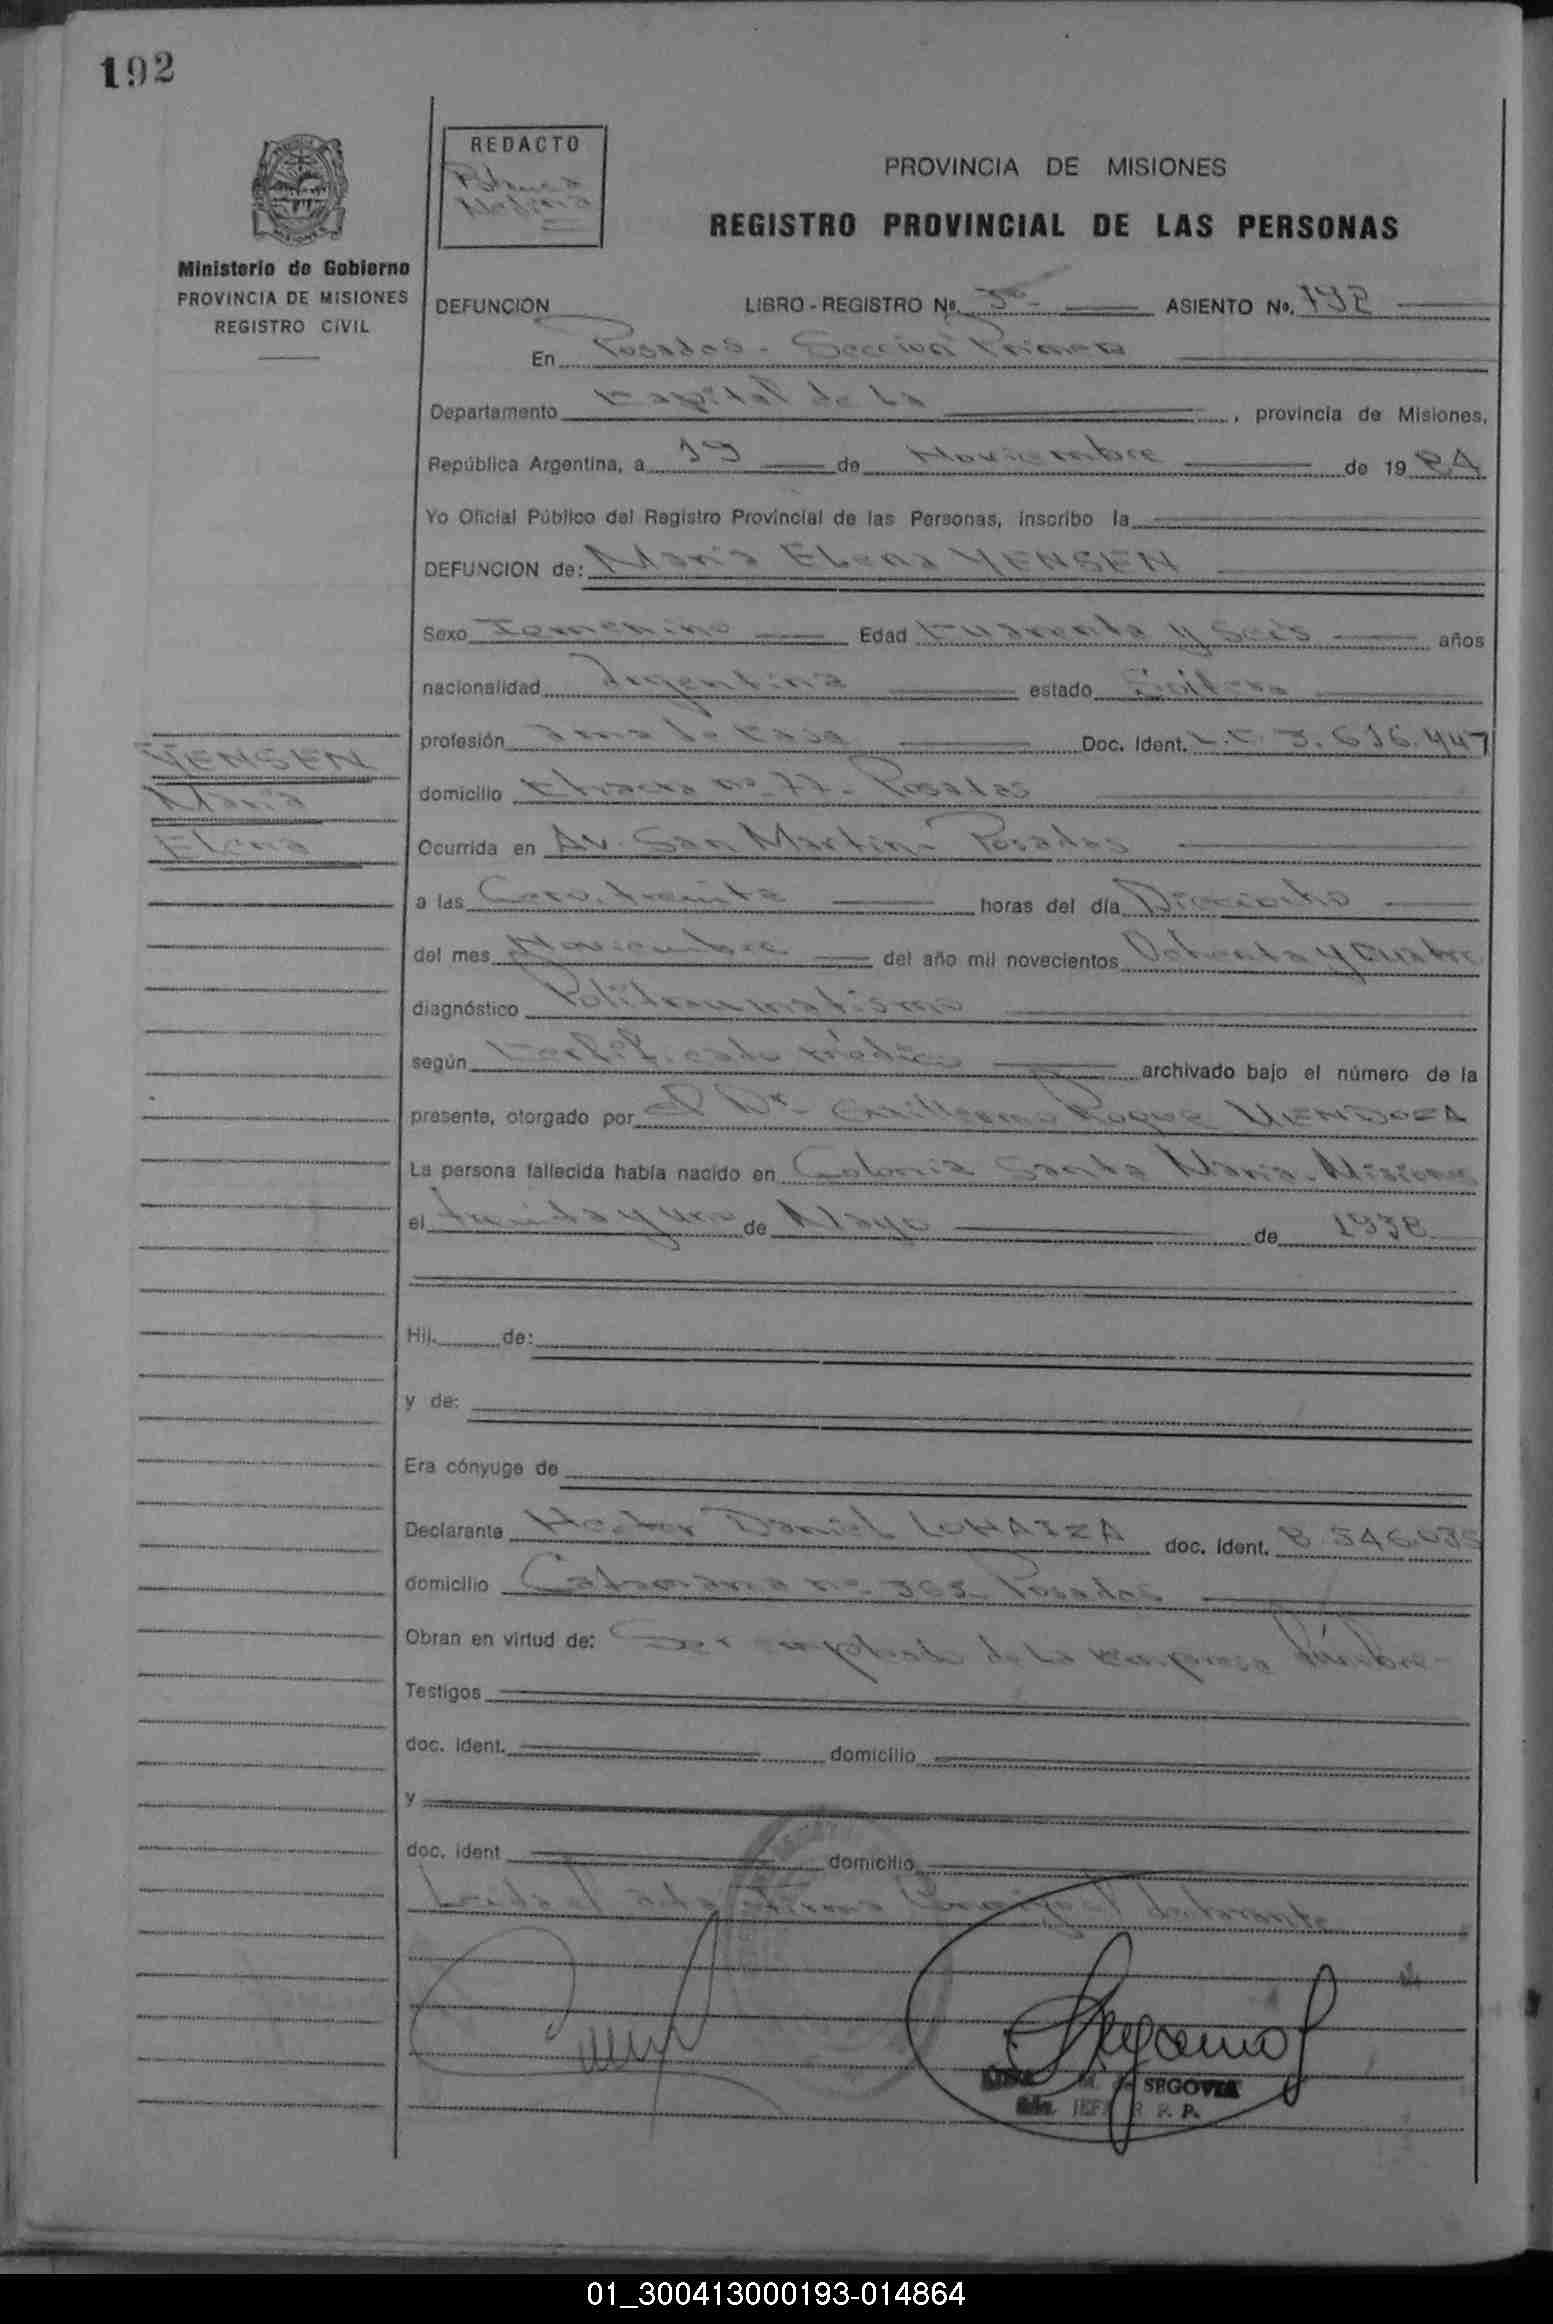 192
REDACTO
Blanca
Medina
PROVINCIA DE MISIONES
REGISTRO PROVINCIAL DE LAS PERSONAS
Ministerio de Gobierno
PROVINCIA DE MISIONES
REGISTRO CIVIL
DEFUNCION LIBRO - REGISTRO No. 3º ASIENTO No. 192
En Posadas - Seccion Primera
Departamento Capital de la , provincia de Misiones,
República Argentina, a 19 de Noviembre de 1984
Yo Oficial Público del Registro Provincial de las Personas, inscribo la
DEFUNCION de: Maria Elena YENSEN
Sexo Femenino Edad Cuarenta y Seis años
nacionalidad Argentina estado Soltera
profesión Ama de Casa Doc. Ident. L.C. 3.616.447
domicilio Chacra nº 77- Posadas
Ocurrida en Av. San Martin- Posadas
a las Cero, treinta horas del día Dieciocho
del mes Noviembre del año mil novecientos Ochenta y Cuatro
diagnóstico Politraumatismo
según Certificado médico archivado bajo el número de la
presente, otorgado por el Dr. Guillermo Roque MENDOZA
La persona fallecida había nacido en Colonia Santa Maria- Misiones
el treinta y uno de Mayo de 1938
YENSEN
Maria
Elena
Hij. de:
y de:
Era cónyuge de
Declarante Hector Daniel doc. Ident. 8.546.035
domicilio Catamarca nº 363 Posadas
Obran en virtud de: Ser empleado de la Empresa fúnebre-
Testigos
doc. ident. domicilio
y
doc. ident domicilio
Leida el acta firma Conmigo el declarante
M. de SEGOVIA
JEFA R. P. P.
01_300413000193-014864